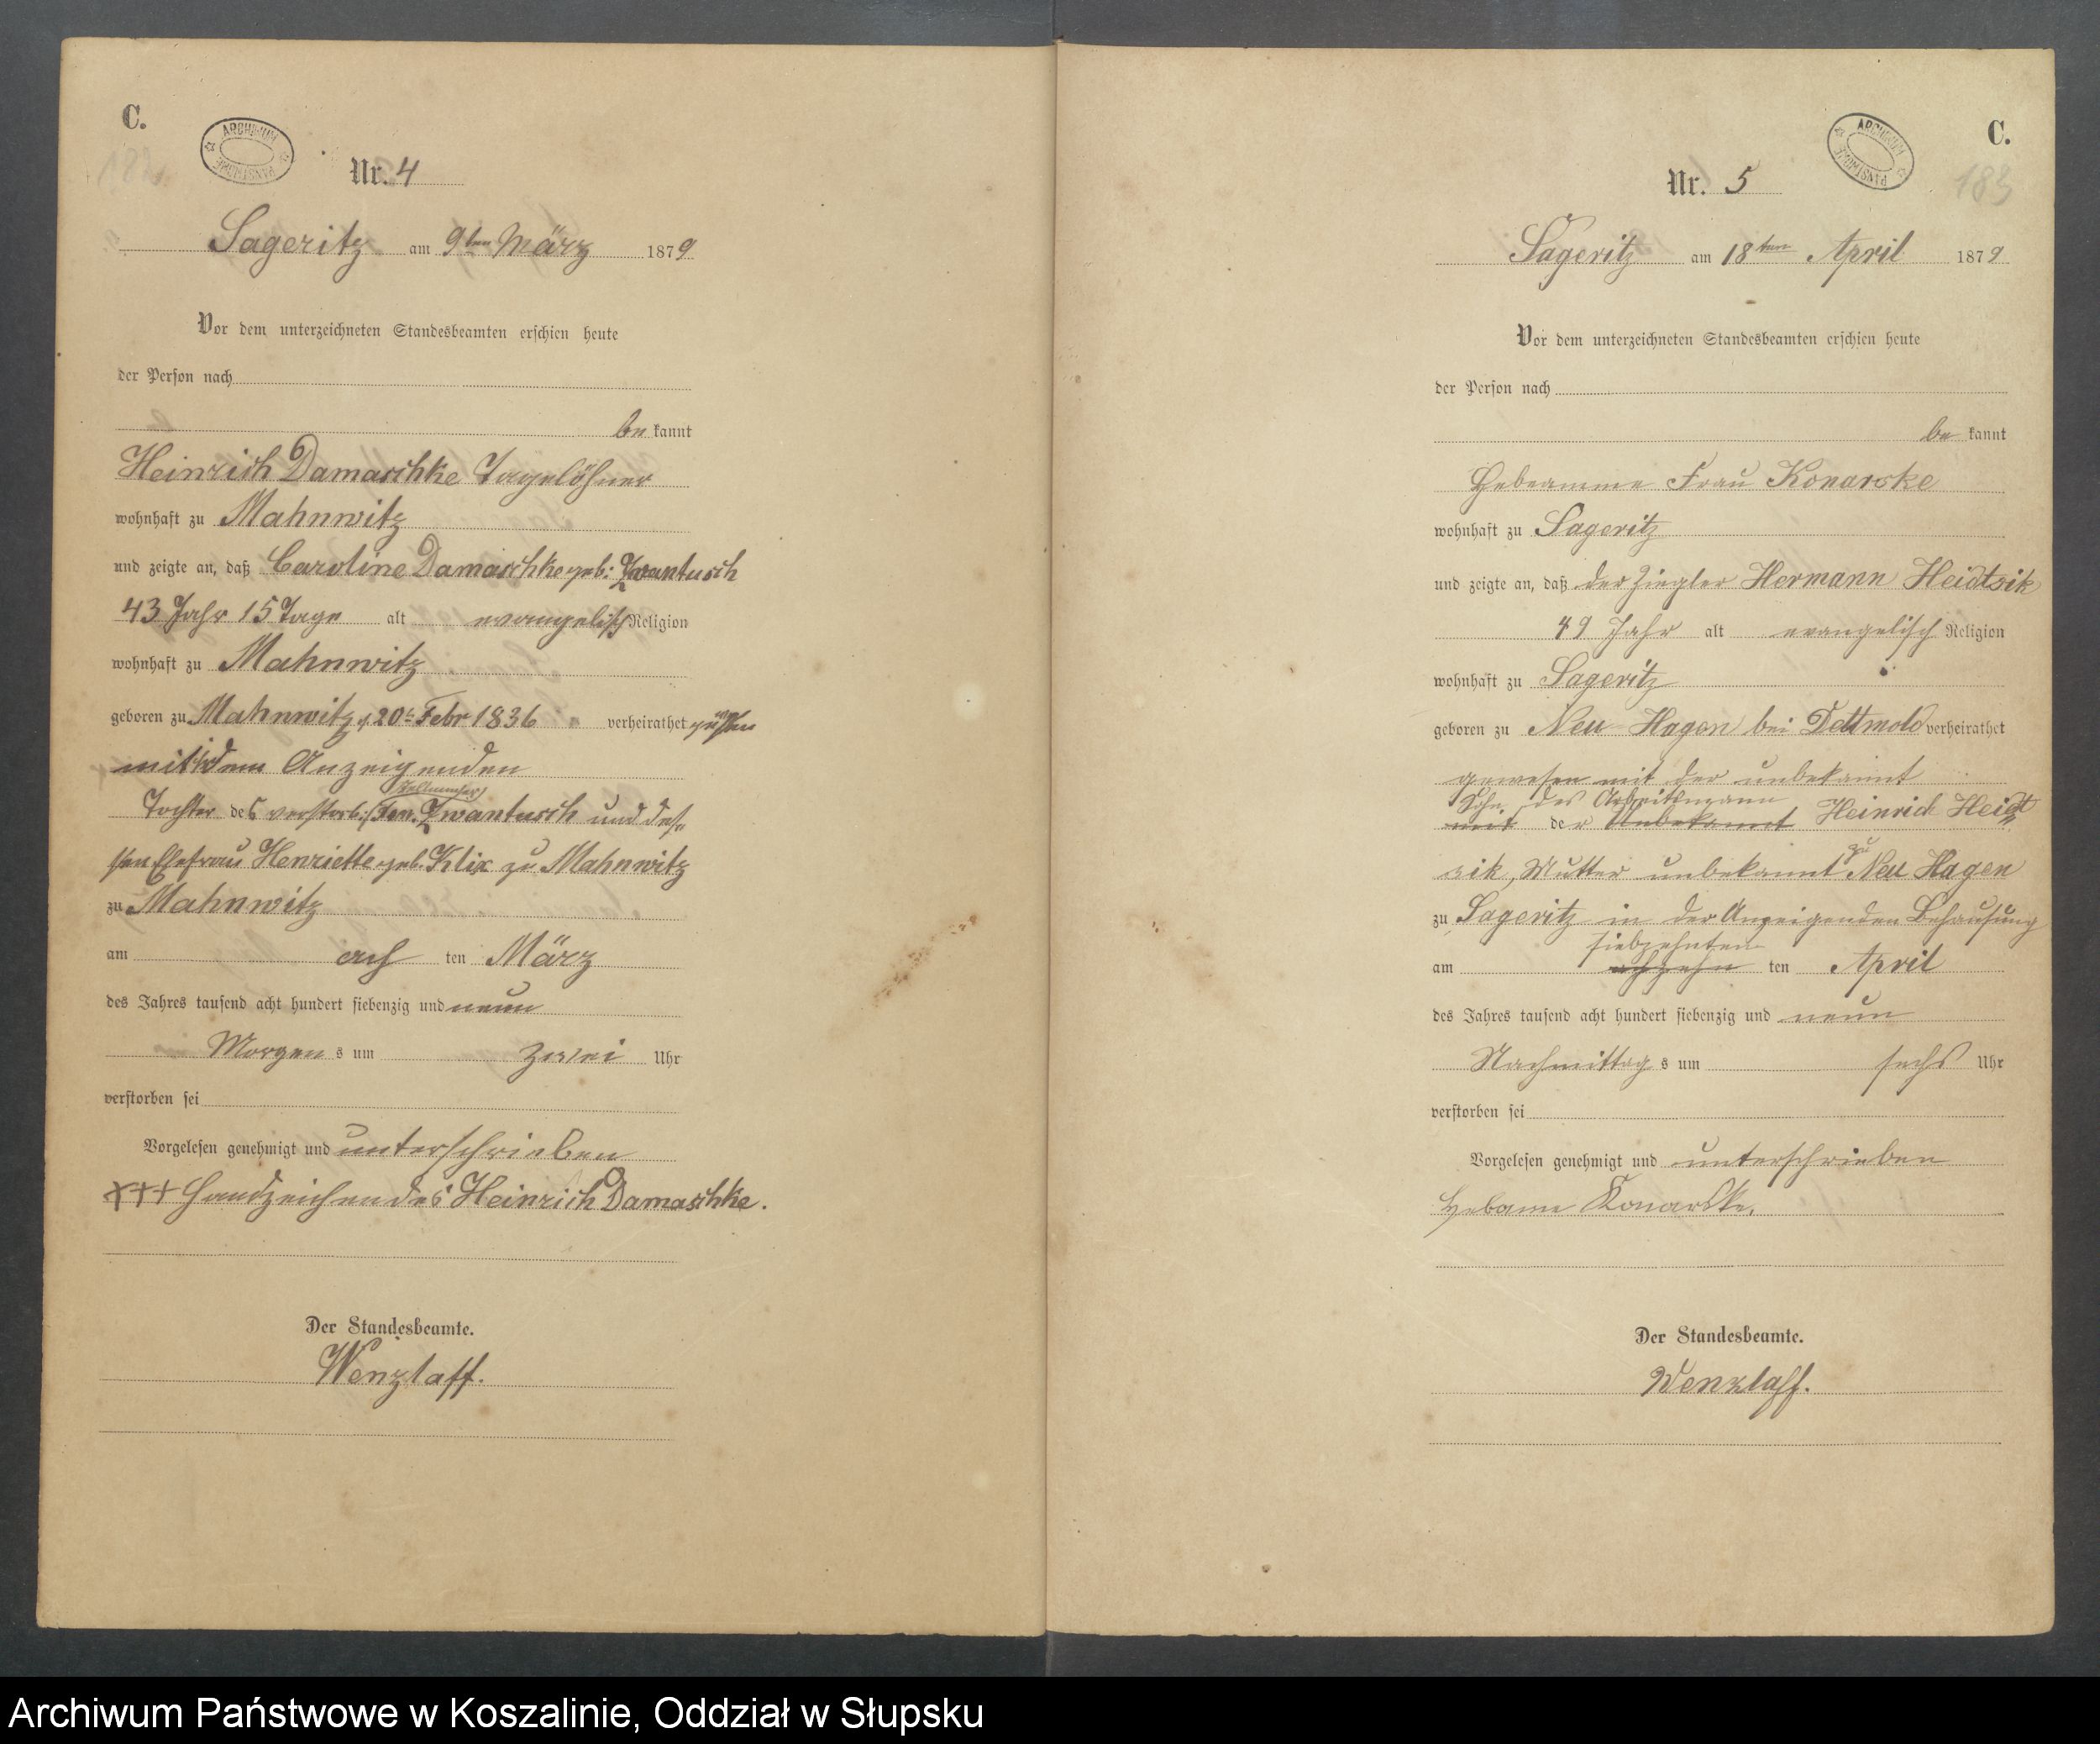 C.
ARCHIWUM PAŃSTWOWE
Nr. 4
Sageritz am 9ten März 1879
Vor dem unterzeichneten Standesbeamten erschien heute
der Person nach
be kannt
Heinrich Damaschke Tagelöhner
wohnhaft zu Mahnwitz
und zeigte an, daß Caroline Damaschke geb: Zwantusch
43 Jahr 15 Tage alt evangelisch Religion
wohnhaft zu Mahnwitz
geboren zu Mahnwitz d. 20t Febr 1836 verheirathet gewesen
mit dem Anzeigenden
Tochter des verstorb: Zwantusch und des-
sen Ehefrau Henriette geb. Klix zu Mahnwitz
zu Mahnwitz
am ach ten März
des Jahres tausend acht hundert siebenzig und neun
Morgen s um zwei Uhr
verstorben sei
Vorgelesen genehmigt und unterschrieben
+++ Handzeichen des Heinrich Damaschke.
Der Standesbeamte.
Wenzlaff.
C.
ARCHIWUM PAŃSTWOWE
183
Nr. 5
Sageritz am 18ten April 1879
Vor dem unterzeichneten Standesbeamten erschien heute
der Person nach
be kannt
Hebeamme Frau Konarske
wohnhaft zu Sageritz
und zeigte an, daß der Ziegler Hermann Heidtsik
49 Jahr alt evangelisch Religion
wohnhaft zu Sageritz
geboren zu Neu Hagen bei Dettmold verheirathet
gewesen mit der unbekannt
Sohn des Arbeitsmann
mit der Unbekannt Heinrich Heidt
sik, Mutter unbekannt zu Neu Hagen
zu Sageritz in der Anzeigenden Behausung
siebzehnten
am achzehn ten April
des Jahres tausend acht hundert siebenzig und neun
Nachmittag s um sechs Uhr
verstorben sei
Vorgelesen genehmigt und unterschrieben
Hebame Konarske.
Der Standesbeamte.
Wenzlaff.
Archiwum Państwowe w Koszalinie, Oddział w Słupsku